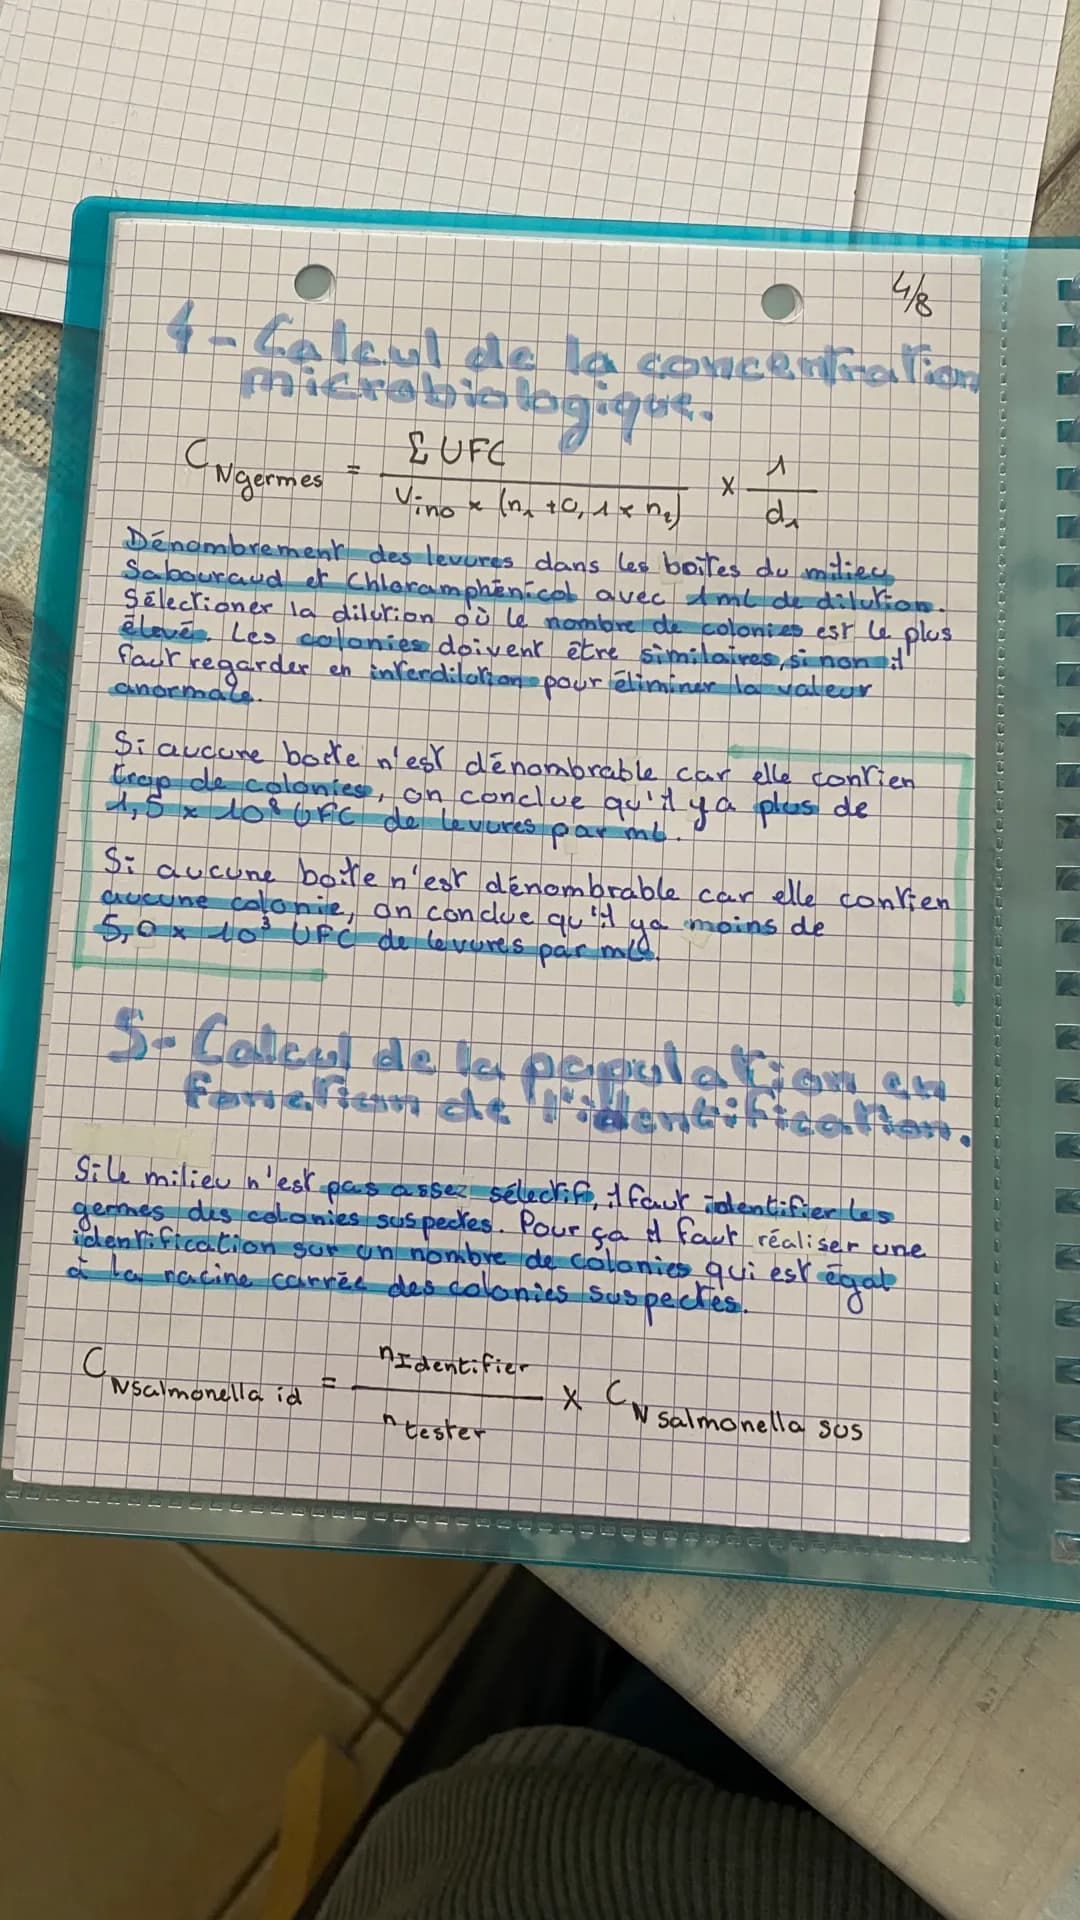 4/8
4-Calcul de la concentration
microbiologique.
C Ngermes = Σ UFC / Vino × (n1 + 0,1 × n2) × 1 / d1
Dénombrement des levures dans les boîtes du milieu
Sabouraud et Chloramphénicol avec 1mL de dilution.
Sélectioner la dilution où le nombre de colonies est le plus
élevé. Les colonies doivent être similaires, si non il
faut regarder en interdilution pour éliminer la valeur
anormale.
Si aucune boîte n'est dénombrable car elle contien
trop de colonies, on conclue qu'il y a plus de
1,5 × 10⁸ UFC de levures par mL.
Si aucune boîte n'est dénombrable car elle contien
aucune colonie, on conclue qu'il ya moins de
5,0 × 10³ UFC de levures par mL.
5-Calcul de la population en
fonction de l'identification.
Si le milieu n'est pas assez sélectif, il faut identifier les
germes des colonies suspectes. Pour ça il faut réaliser une
identification sur un nombre de colonies qui est égal
à la racine carrée des colonies suspectes.
C Nsalmonella id = n Identifier / n tester × C N salmonella sus